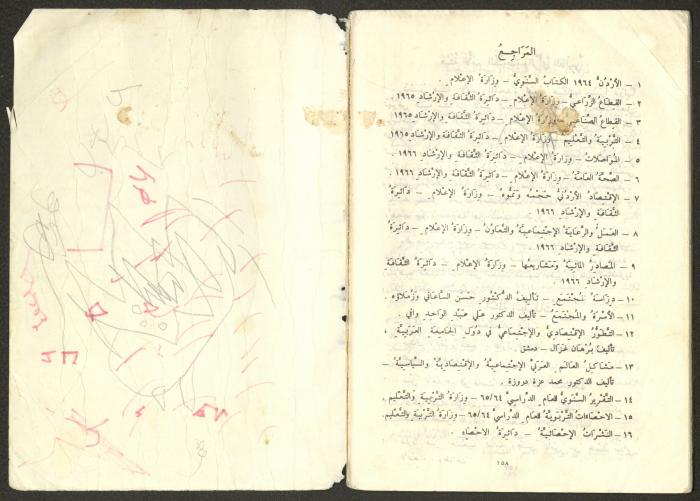 المَرَاجِعُ
١ – الأردنُّ ١٩٦٤ الكتابُ السَّنويُّ – وِزَارَةُ الإعْلامِ .
٢ – القِطَاعُ الزِّرَاعيُّ – وِزَارَةُ الإعْلامِ – دَائِرَةُ الثَّقَافَةِ والإرْشَادِ ١٩٦٥
٣ – القِطَاعُ الصِّنَاعِيُّ – وِزَارَةُ الإعْلامِ – دَائِرَةُ الثَّقَافَةِ والإرْشَادِ ١٩٦٥
٤ – التَّرْبِيَةُ والتَّعْلِيمُ – وِزَارَةُ الإعْلامِ – دَائِرَةُ الثَّقَافَةِ والإرْشَادِ ١٩٦٥
٥ – المُوَاصَلَاتُ – وِزَارَةُ الإعْلامِ – دَائِرَةُ الثَّقَافَةِ والإرْشَادِ ١٩٦٦ .
٦ – الصِّحَّةُ العَامَّةُ – وِزَارَةُ الإعْلامِ – دَائِرَةُ الثَّقَافَةِ والإرْشَادِ ١٩٦٦ .
٧ – الإقْتِصَادُ الأرْدُنيُّ حَجْمُهُ وَنُمُوُّهُ – وِزَارَةُ الإعْلامِ – دَائِرَةُ
الثَّقَافَةِ والإرْشَادِ ١٩٦٦ .
٨ – العَمَلُ والرِّعَايَةُ الإجْتِمَاعِيَّةُ والتَّعَاوُنُ – وِزَارَةُ الإعْلامِ – دَائِرَةُ
الثَّقَافَةِ والإرْشَادِ ١٩٦٦ .
٩ – المَصَادِرُ المَائِيَّةُ وَمَشَارِيعُهَا – وِزَارَةُ الإعْلامِ – دَائِرَةُ الثَّقَافَةِ
والإرْشَادِ ١٩٦٦ .
١٠ – دِرَاسَةُ المُجْتَمَعِ – تَأليفُ الدُّكْتُورِ حَسَن السَّاعَاتي وزُمَلَاؤه .
١١ – الأسْرَةُ والمُجْتَمَعُ – تأليف الدكتور عَلي عَبْد الوَاحِدِ وافي .
١٢ – التَّطَوُّرُ الإقْتِصَادِيُّ والإجْتِمَاعِيُّ في دُوَلِ الجَامِعَةِ العَرَبِيَّةِ ،
تَأليفُ بُرْهَان غَزَال – دمشق .
١٣ – مَشَاكِلُ العَالَمِ العَرَبيِّ الإجْتِمَاعِيَّةُ والإقْتِصَادِيَّةُ والسِّيَاسِيَّةُ –
تأليف الدكتور محمد عزة دروزة .
١٤ – التَّقْرِيرُ السَّنَوِيُّ للعَامِ الدِّرَاسِيِّ ٦٥/٦٤ – وِزَارَةُ التَّرْبِيَةِ والتَّعْلِيمِ .
١٥ – الاحْصَاءَاتُ التَّرْبَوِيَّةُ للعَامِ الدِّرَاسِيِّ ٦٥/٦٤ – وِزَارَةُ التَّرْبِيَةِ والتَّعْلِيمِ
١٦ – النَّشَرَاتُ الإحْصَائِيَّةُ – دَائِرَةُ الاحْصَاءِ .
١٥٨